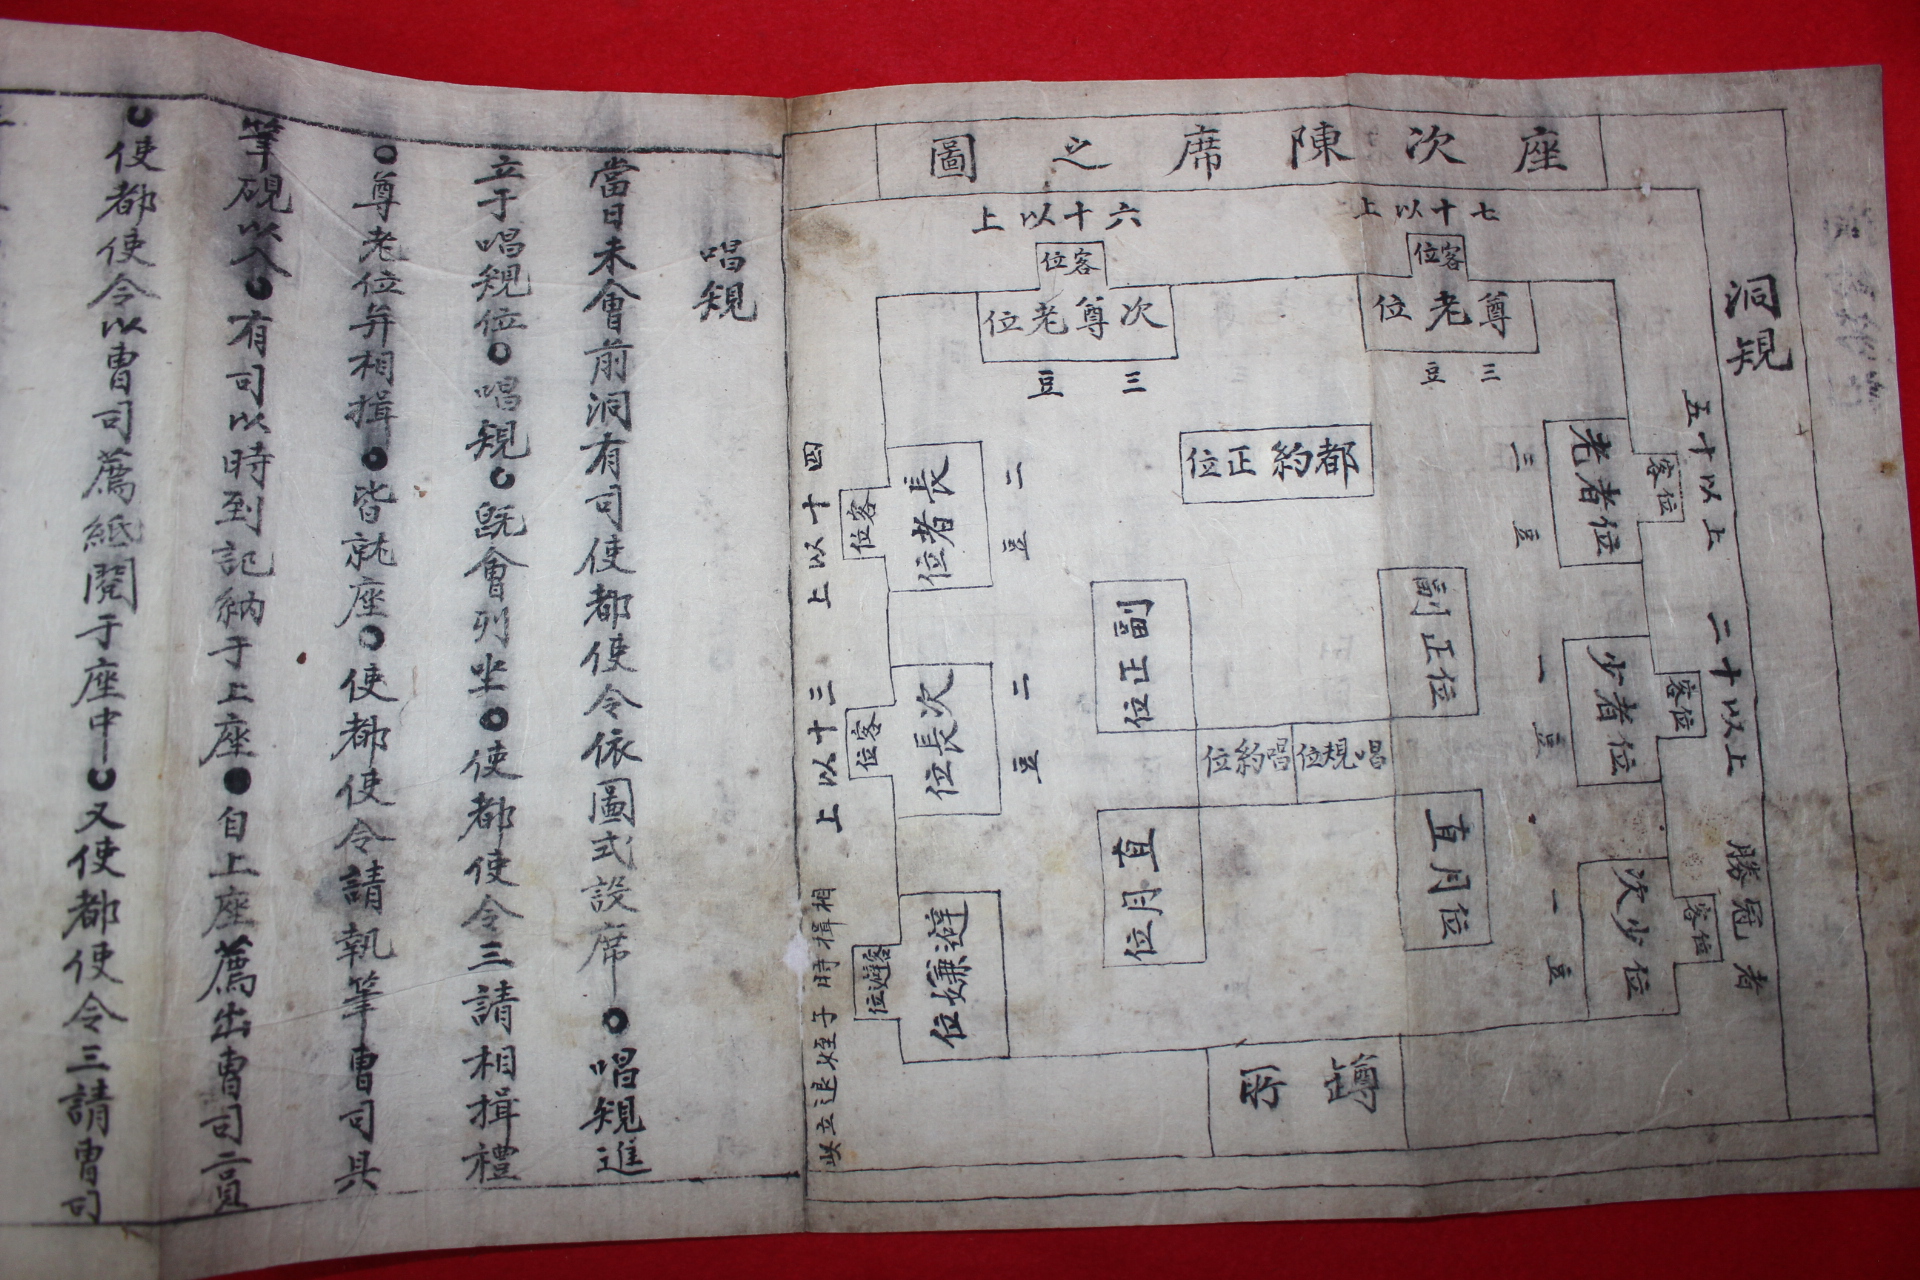 洞規
座次陳席之圖
七十以上
客位
尊老位
三豆
六十以上
客位
次尊老位
三豆
五十以上
客位
老者位
三豆
二十以上
客位
少者位
一豆
勝冠者
客位
次少位
一豆
都約正位
副正位
副正位
唱規位
唱約位
直月位
直月位
四十以上
客位
長者位
二豆
三十以上
客位
次長位
二豆
客避位
避嫌位
相揖時子姪退立
罇所
唱規
當日未會前洞有司使都使令依圖式設席○唱規進
立于唱規位○唱規○旣會列坐○使都使令三請相揖禮
○尊老位并相揖●皆就座○使都使令請執筆曹司具
筆硯以入●有司以時到記納于上座●自上座薦出曹司二員
○使都使令以曹司薦紙閱于座中○又使都使令三請曹司